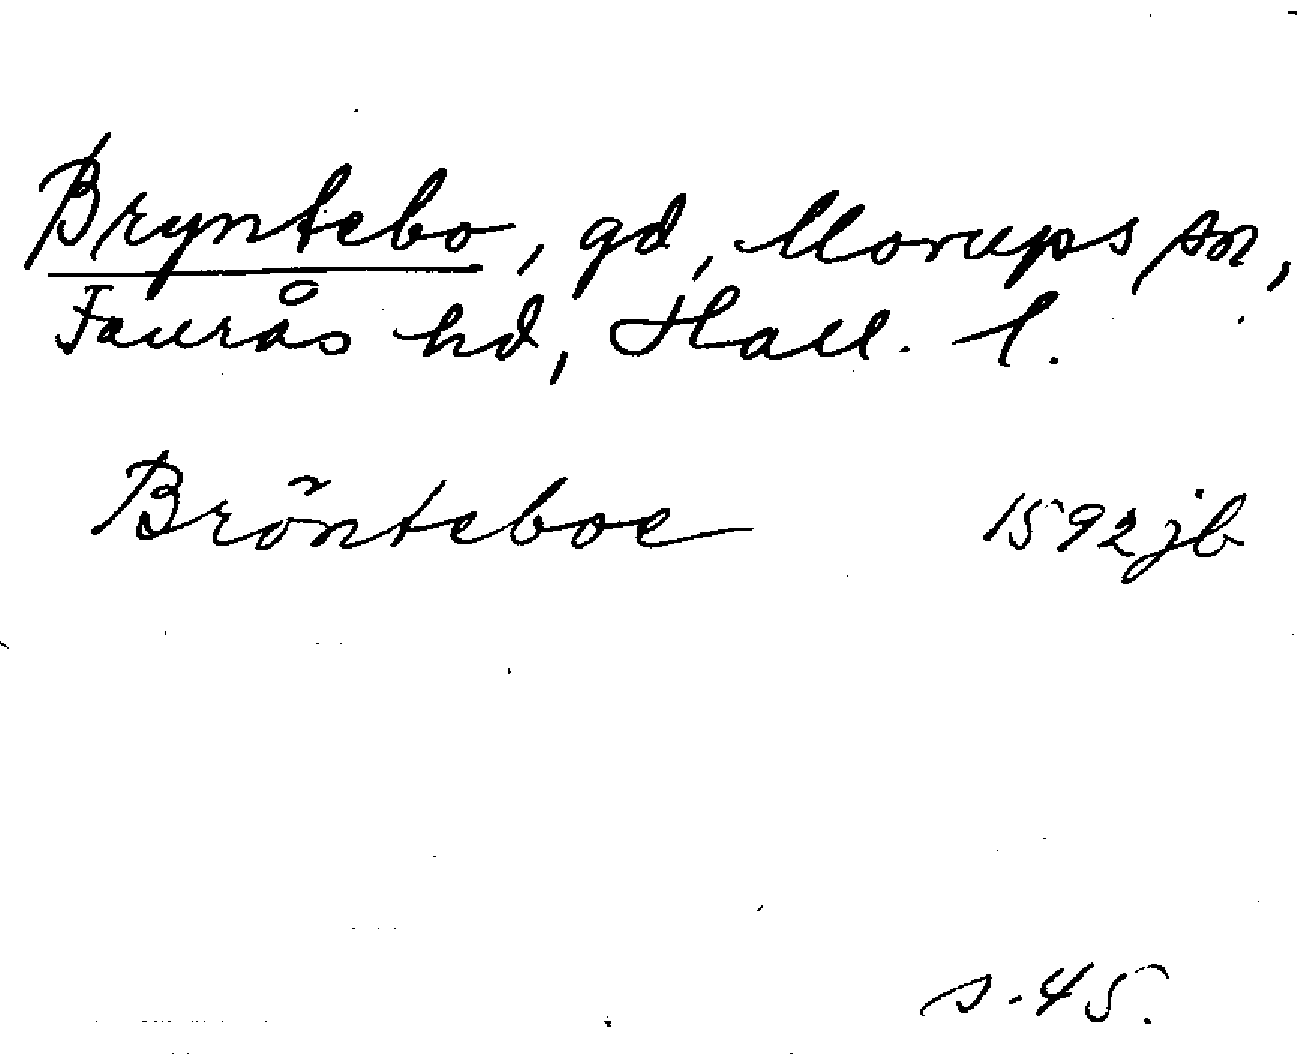 Bryntebo, gd, Morups sn,
Faurås hd, Hall. l.
Brönteboe 1592 jb
s. 45.